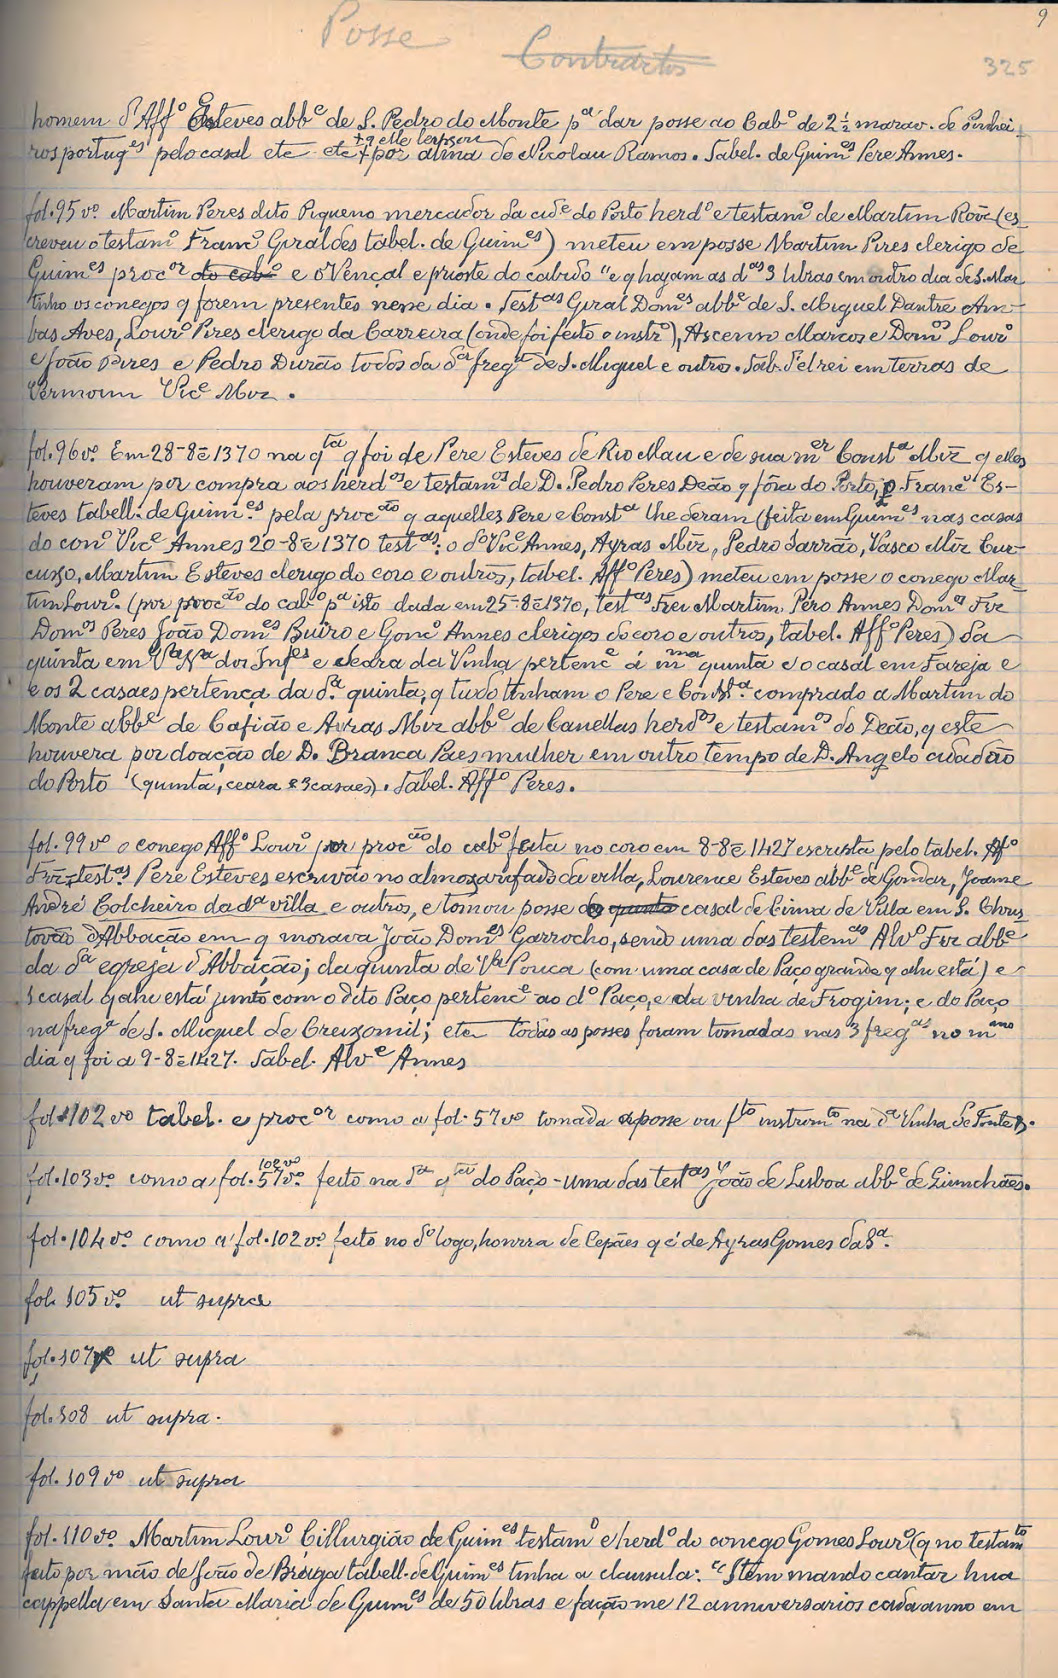 9
Posse
Contractos
325
homem d'Affº Esteves abbe de S. Pedro do Monte pª dar posse ao Cabº de 2½ marav. de dinhei-
ros portuges pelo casal etc etc + por alma de Nicolau Ramos. Tabel. de Guimes Pere Annes.
fol. 95 vº Martim Peres dito Piqueno mercador da cide do Porto herdº e testamº de Martim (es
creveu o testamº Francº Giraldes tabel. de Guimes) meteu em posse Martim Pires clerigo de
Guimes procor do cabº e o Vençal e prioste do cabido "e q hajam as das 3 libras em outro dia de S. Mar
tinho os conegos q forem presentes nesse dia. Testas Giral Domes abbe de S. Miguel Dantre Am-
bas Aves, Lourº Pires clerigo da Carreira (onde foi feito o instrº), Ascenso Marcos e Domos Lourº
e João Pires e Pedro Durão todos da dª fregª de S. Miguel e outro. Tab. d'elrei em terras de
Vermoim Vice Miz.
fol. 96 vº. Em 28-8-1370 na qta q foi de Pere Esteves de Rio Mau e de sua mer Constª Miz q elles
houveram por compra aos herdos e testamos de D. Pedro Peres Deão q fôra do Porto, p. Francº Es-
teves tabell. de Guimes pela procção q aquelles Pere e Constª lhe deram (feita em Guimes nas casas
do conº Vice Annes 20-8-1370 testas: o dº Vice Annes, Ayras Miz, Pedro Sarrão, Vasco Miz Cur-
cuzo, Martim Esteves clerigo do coro e outros, tabel. Affº Peres) meteu em posse o conego Mar-
tim Lourº. (por procção do cabº pª isto dada em 25-8-1370, testas Frei Martim, Pero Annes Domes Frz
Domos Peres João Domes Buiro e Goncº Annes clerigos do coro e outros, tabel. Affº Peres) da
quinta em Vª Nª dos Infes e ceara da Vinha pertence á mma quinta e o casal em Fareja e
e os 2 casaes pertença da dª. quinta, q tudo tinham o Pere e Constª. comprado a Martim do
Monte abbe de Cafião e Ayras Miz abbe de Canellas herdos e testamos do Deão, q este
houvera por doação de D. Branca Paes mulher em outro tempo de D. Angelo cidadão
do Porto (quinta, ceara e 3 casaes). Tabel. Affº Peres.
fol. 99 vº o conego Affº Lourº por procção do cabº feita no coro em 8-8-1427 escrista pelo tabel. Afº
Frz, testas Pere Esteves escrivão no almoxarifado da villa, Lourence Esteves abbe de Gondar, Joanne
André Colcheiro da dª villa e outros, e tomou posse do quinta casal de Cima de Villa em S. Chris
tovão d'Abbação em q morava João Domes Garrocho, sendo uma das testemas Alvº Frz abbe
da dª egreja d'Abbação; da quinta de Vª Pouca (com uma casa de Paço grande q ahi está) e
1 casal q ahi está junto com o dito Paço pertence ao dº Paço, e da vinha de Frogim; e do Paço
na fregª de S. Miguel de Creixomil; etc todas as posses foram tomadas nas 3 fregas no mmo
dia q foi a 9-8-1427. Tabel. Alve Annes
fol. 102 vº tabel. e procor como a fol. 57 vº tomada a posse ou fto instrumto na dª Vinha de Fonte
fol. 103 vº. como a fol. 57 vº. 102 vº feito na dª qta do Paço - uma das testas João de Lisboa abbe de Guinchães.
fol. 104 vº. como a fol. 102 vº. feito no dº logo, honrra de Cepães q é de Ayras Gomes da Sª.
fol. 105 vº. ut supra
fol. 107 vº ut supra
fol. 108 ut supra.
fol. 109 vº ut supra
fol. 110 vº. Martim Lourº Cillurgião de Guimes testamº e herdº do conego Gomes Lourº (q no testamto
feito por mão de João de Braga tabell. de Guimes tinha a clausula: "Item mando cantar hua
cappella em Santa Maria de Guimes de 50 libras e fação me 12 anniversarios cada anno em